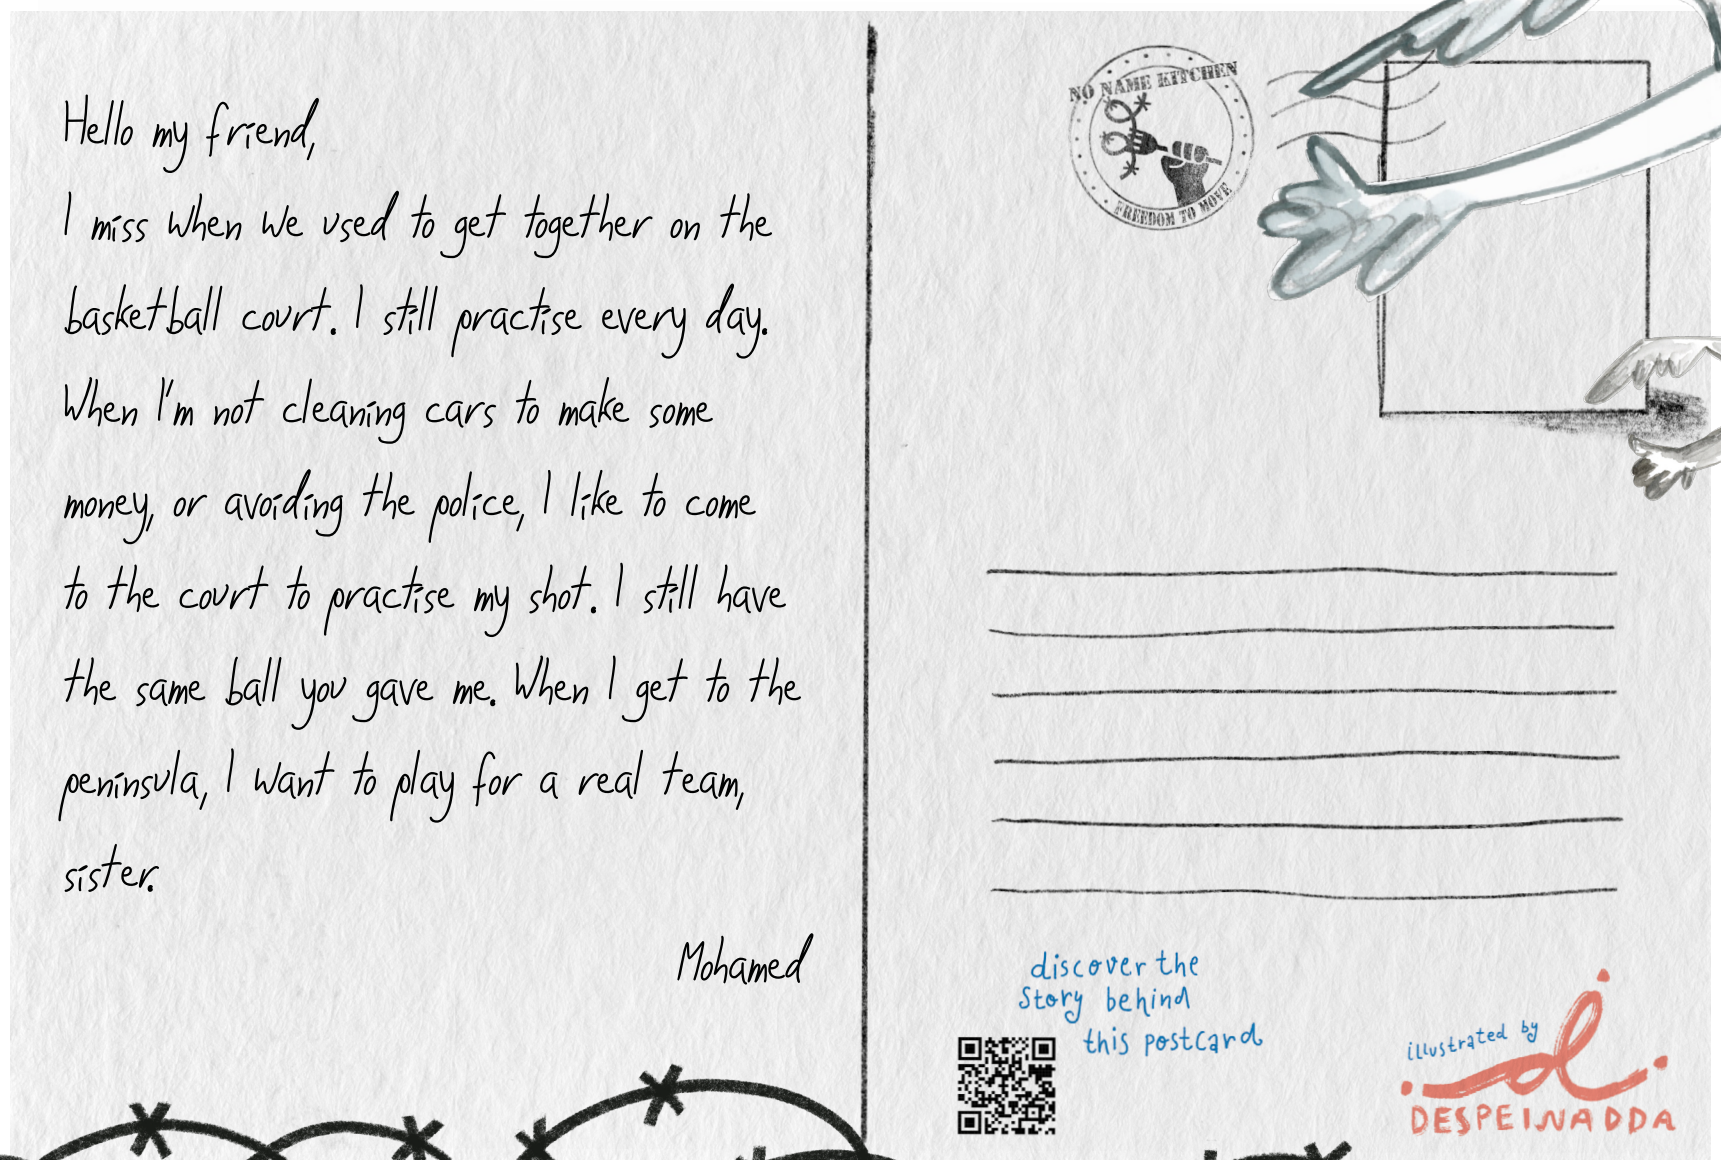 Hello my friend,
I miss when we used to get together on the
basketball court. I still practise every day.
When I'm not cleaning cars to make some
money, or avoiding the police, I like to come
to the court to practise my shot. I still have
the same ball you gave me. When I get to the
peninsula, I want to play for a real team,
sister.
Mohamed
NO NAME KITCHEN
FREEDOM TO MOVE
discover the
story behind
this postcard
illustrated by
DESPEINADDA